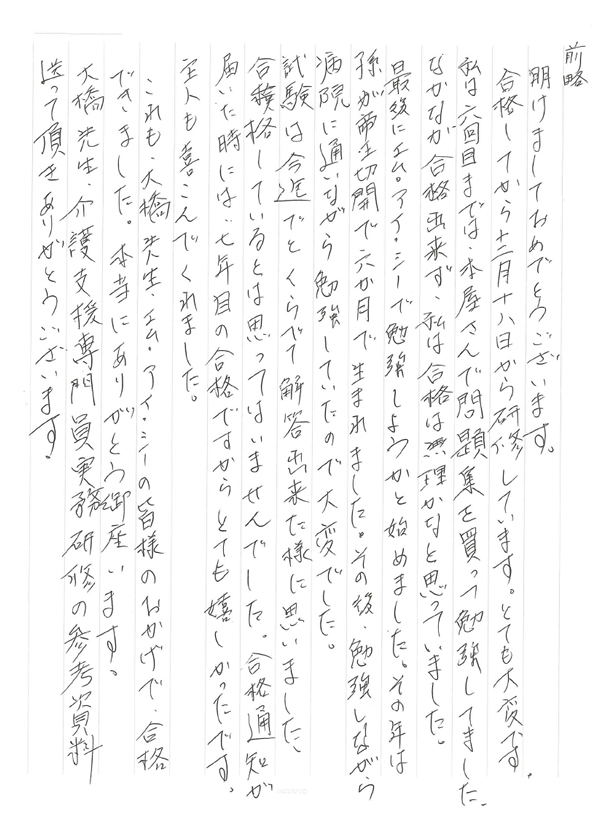 前略
明けましておめでとうございます。
合格してから十二月十八日から研修しています。とても大変です。
私は六回目までは、本屋さんで問題集を買って勉強してました。
なかなか合格出来ず、私は合格は無理かなと思っていました。
最後にエム・アイ・シーで勉強しようかと始めました。その年は
孫が帝王切開で六か月で生まれました。その後、勉強しながら
病院に通いながら勉強していたので大変でした。
試験は今迄でとくらべて解答出来た様に思いました、
合格しているとは思ってはいませんでした。合格通知が
届いた時には、七年目の合格ですからとても嬉しかったです。
主人も喜こんでくれました。
これも、大橋先生、エム・アイ・シーの皆様のおかげで、合格
できました。本当にありがとう御座います。
大橋先生、介護支援専門員実務研修の参考資料
送って頂きありがとうございます。